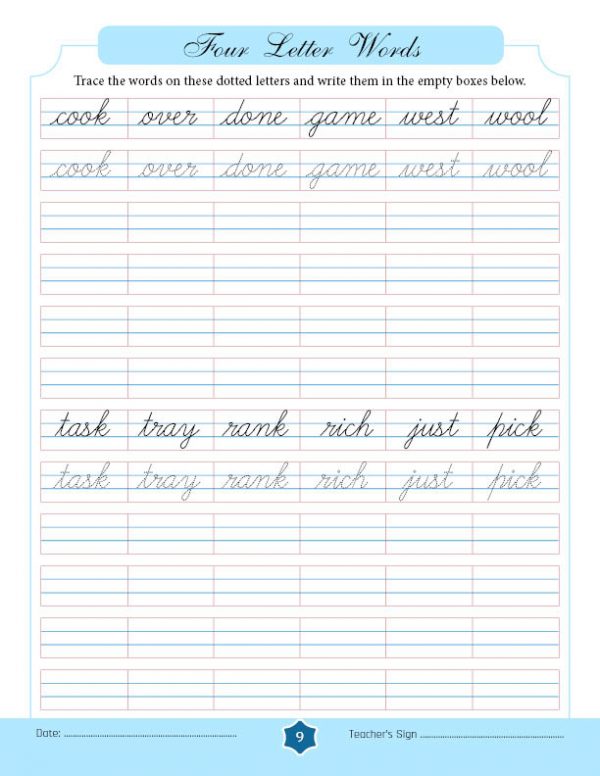 Four Letter Words
Trace the words on these dotted letters and write them in the empty boxes below.
cook over done game west wool
cook over done game west wool
task tray rank rich just pick
task tray rank rich just pick
Date: ........................................................ 9 Teacher's Sign ................................................